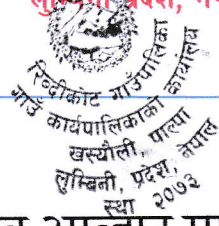 लुम्बिनी प्रदेश, ने
रिब्दीकोट गाउँपालिका
गाउँ कार्यपालिकाको कार्यालय
खस्यौली, पाल्पा
लुम्बिनी, प्रदेश, नेपाल
स्था २०७३